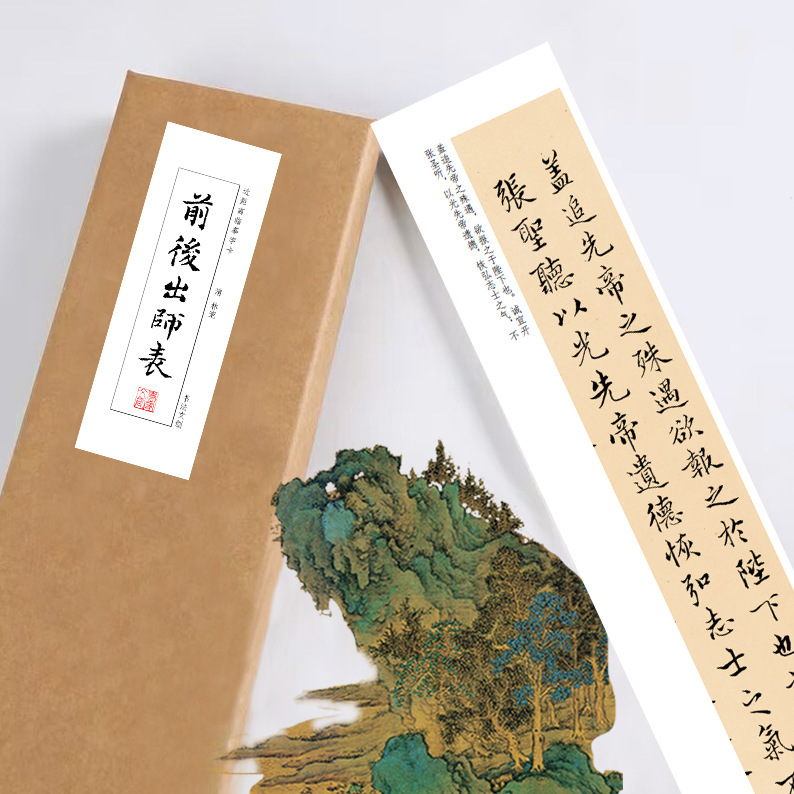 近距离临摹字卡
前後出師表
蓋追先帝之殊遇欲報之於陛下也
張聖聽以光先帝遺德恢弘志士之氣
盖追先帝之殊遇，欲报之于陛下也。诚宜开
张圣听，以光先帝遗德，恢弘志士之气，不